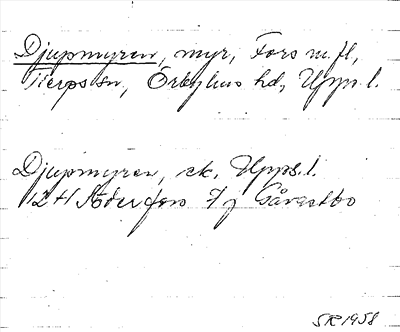 Djupmyren, myr, Fors m. fl,
Tierps sn, Örbyhus hd, Upps. l.
Djupmyren, ek, Upps. l.
12 H Söderfors 7 j Gårastbo
SR 1958